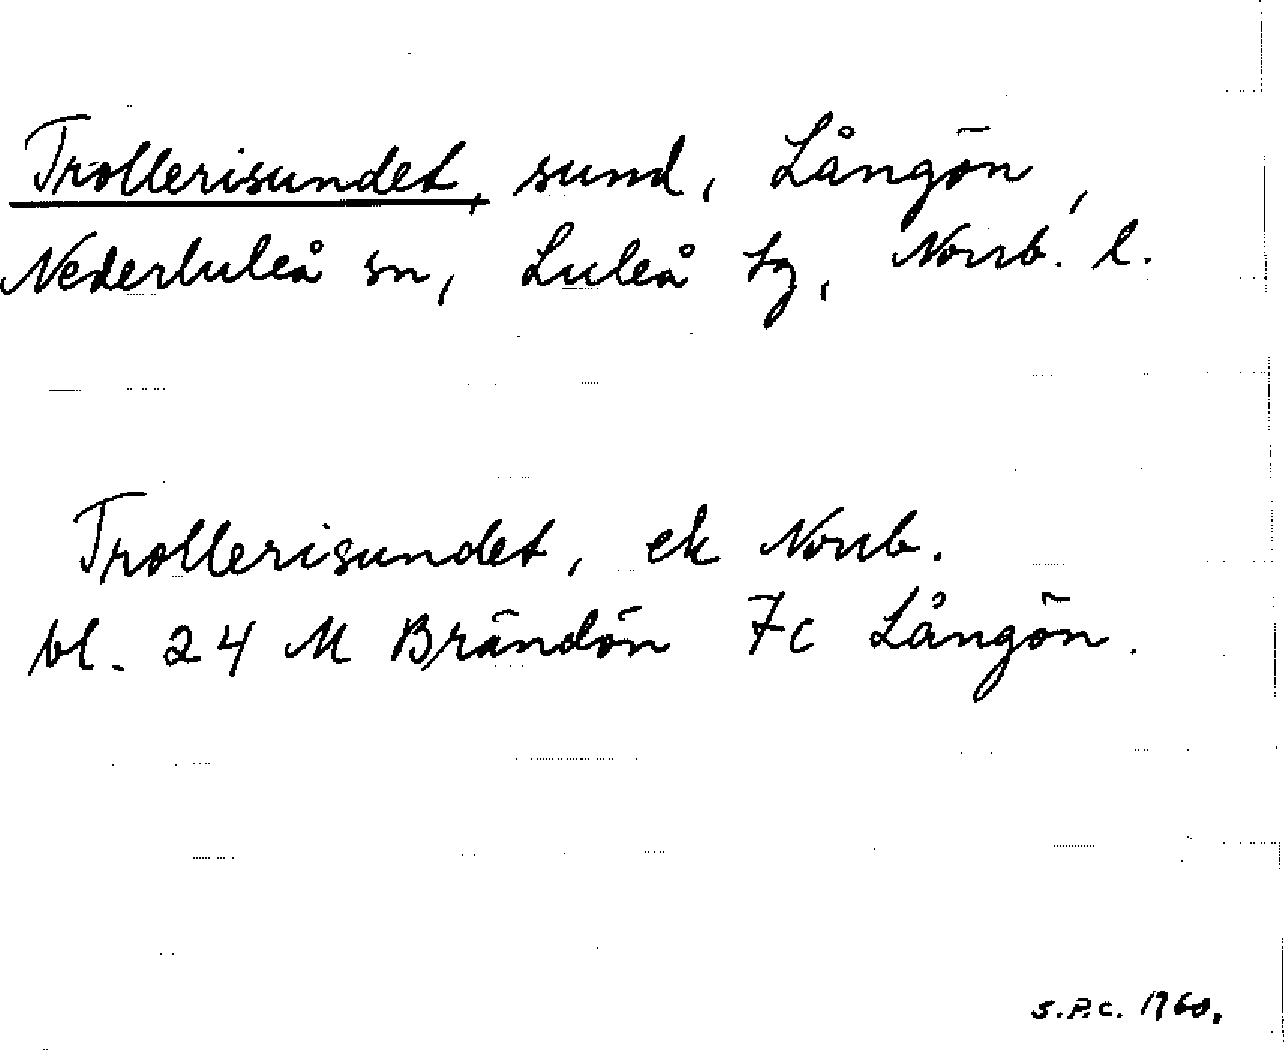 Trollerisundet, sund, Långön,
Nederluleå sn, Luleå tg, Norrb. l.
Trollerisundet, ek Norrb.
bl. 24 M Brändön 7c Långön.
S.P.C. 1960.